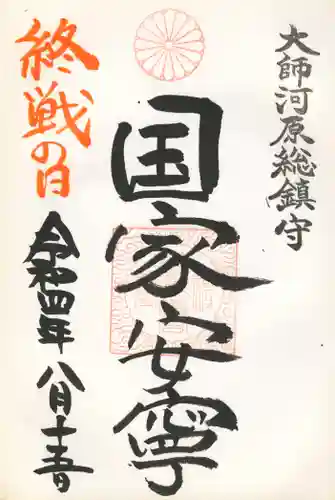 大師河原総鎮守
国家安寧
終戦の日
令和四年 八月十五日